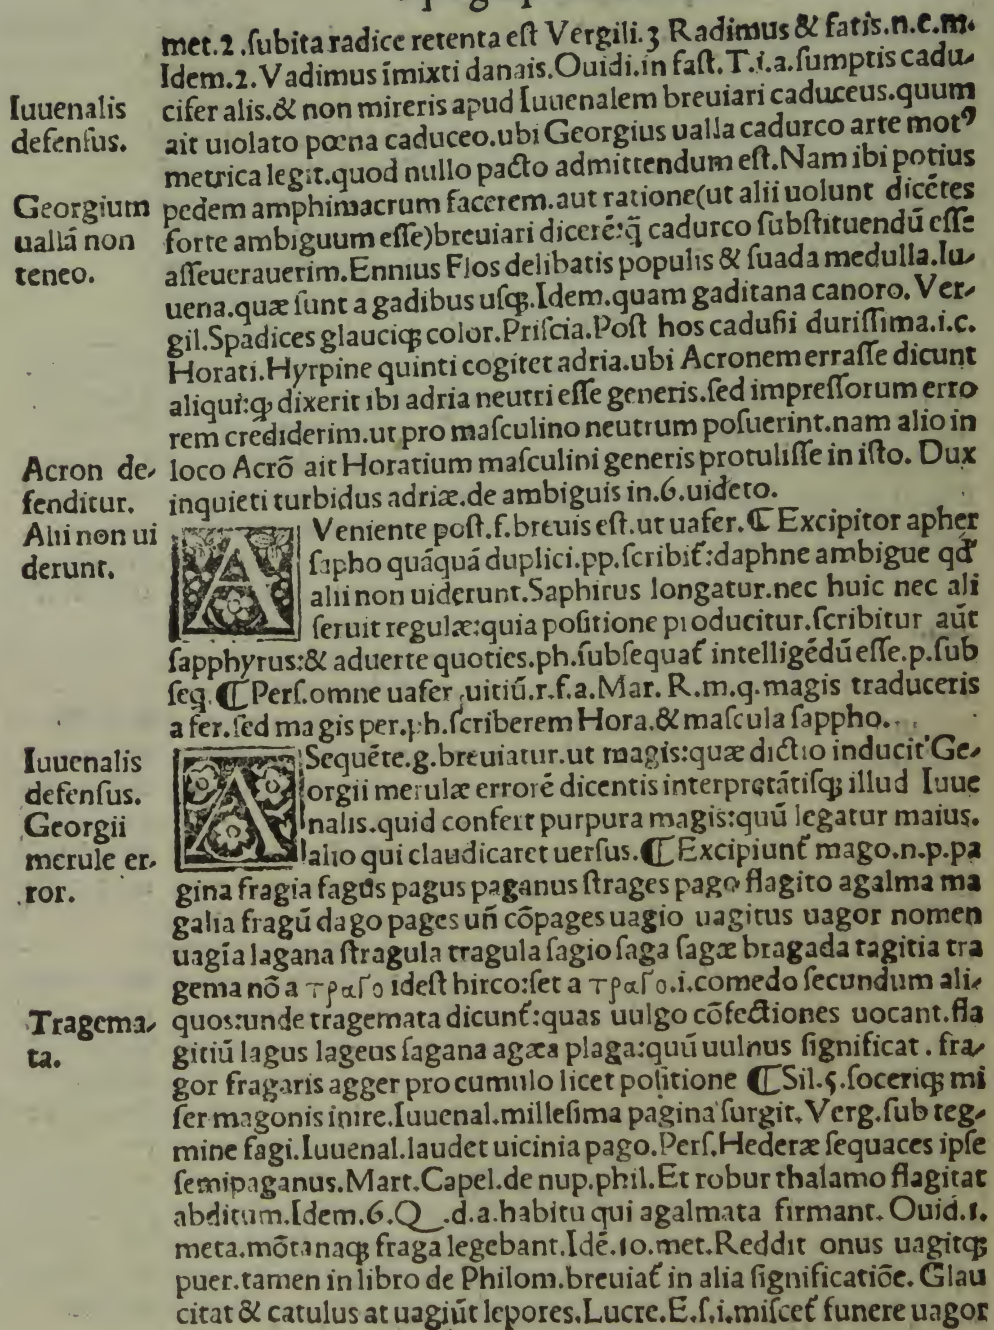 met.2.ſubita radice retenta eſt Vergili.3 Radimus & fatis.n.e.m.
Idem.2.Vadimus ĩmixti danais.Ouidi.in faſt.T.i.a.ſumptis cadu-
Iuuenalis cifer alis.& non mireris apud Iuuenalem breuiari caduceus.quum
defenſus. ait uiolato pœna caduceo.ubi Georgius ualla cadurco arte motꝰ
metrica legit.quod nullo pacto admittendum eſt.Nam ibi potius
Georgium pedem amphimacrum facerem.aut ratione(ut alii uolunt dicẽtes
uallã non forte ambiguum eſſe)breuiari dicerẽ:q̃ cadurco ſubſtituendũ eſſe
teneo. aſſeuerauerim.Ennius Flos delibatis populis & ſuada medulla.Iu-
uena.quæ ſunt a gadibus uſqꝫ.Idem.quam gaditana canoro.Ver-
gil.Spadices glauciqꝫ color.Priſcia.Poſt hos caduſii duriſſima.i.c.
Horati.Hyrpine quinti cogitet adria.ubi Acronem erraſſe dicunt
aliqui:ꝙ dixerit ibi adria neutri eſſe generis.ſed impreſſorum erro
rem crediderim.ut pro maſculino neutrum poſuerint.nam alio in
Acron de- loco Acrõ ait Horatium maſculini generis protuliſſe in iſto. Dux
fenditur. inquieti turbidus adriæ.de ambiguis in.6.uideto.
Alii non ui A Veniente poſt.f.breuis eſt.ut uafer.⁋ Excipitor apher
derunt. ſapho quãquã duplici.pp.ſcribit̃:daphne ambigue qd̃
alii non uiderunt.Saphirus longatur.nec huic nec ali
ſeruit regulæ:quia poſitione producitur.ſcribitur aũt
ſapphyrus:& aduerte quoties.ph.ſubſequat̃ intelligẽdũ eſſe.p.ſub
ſeq.⁋Perſ.omne uafer uitiũ.r.f.a.Mar. R.m.q.magis traduceris
a fer.ſed magis per.ph.ſcriberem Hora.& maſcula ſappho.
Iuuenalis A Sequẽte.g.breuiatur.ut magis:quæ dictio inducit Ge-
defenſus. orgii merulæ errorẽ dicentis interpretãtiſqꝫ illud Iuue
Georgii nalis.quid confert purpura magis:quũ legatur maius.
merule er- alio qui claudicaret uerſus.⁋Excipiunt̃ mago.n.p.pa
ror. gina fragia fagus pagus paganus ſtrages pago flagito agalma ma
galia fragũ dago pages uñ cõpages uagio uagitus uagor nomen
uagĩa lagana ſtragula tragula ſagio ſaga ſagæ bragada tagitia tra
gema nõ a τραγο ideſt hirco:ſet a τραγο.i.comedo ſecundum ali-
Tragema- quos:unde tragemata dicunt̃:quas uulgo cõfectiones uocant.fla
ta. gitiũ lagus lageus ſagana agæa plaga:quũ uulnus ſignificat . fra-
gor fragaris agger pro cumulo licet poſitione ⁋Sil.5.ſoceriqꝫ mi
ſer magonis inire.Iuuenal.milleſima pagina ſurgit.Verg.ſub teg-
mine fagi.Iuuenal.laudet uicinia pago.Perſ.Hederæ ſequaces ipſe
ſemipaganus.Mart.Capel.de nup.phil.Et robur thalamo flagitat
abditum.Idem.6.Q .d.a.habitu qui agalmata firmant. Ouid.1.
meta.mõtanaqꝫ fraga legebant.Idẽ.10.met.Reddit onus uagitqꝫ
puer.tamen in libro de Philom.breuiat̃ in alia ſignificatiõe. Glau
citat & catulus at uagiũt lepores.Lucre.E.f.i.miſcet̃ funere uagor